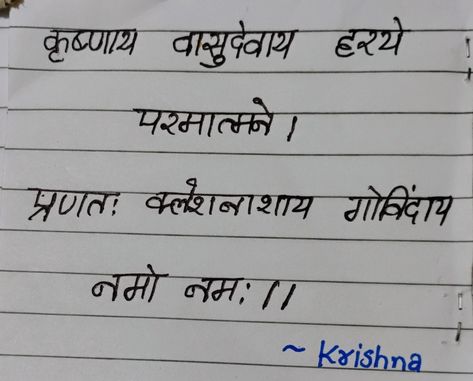 कृष्णाय वासुदेवाय हरये
परमात्मने।
प्रणतः क्लेशनाशाय गोविंदाय
नमो नमः।।
~ Krishna